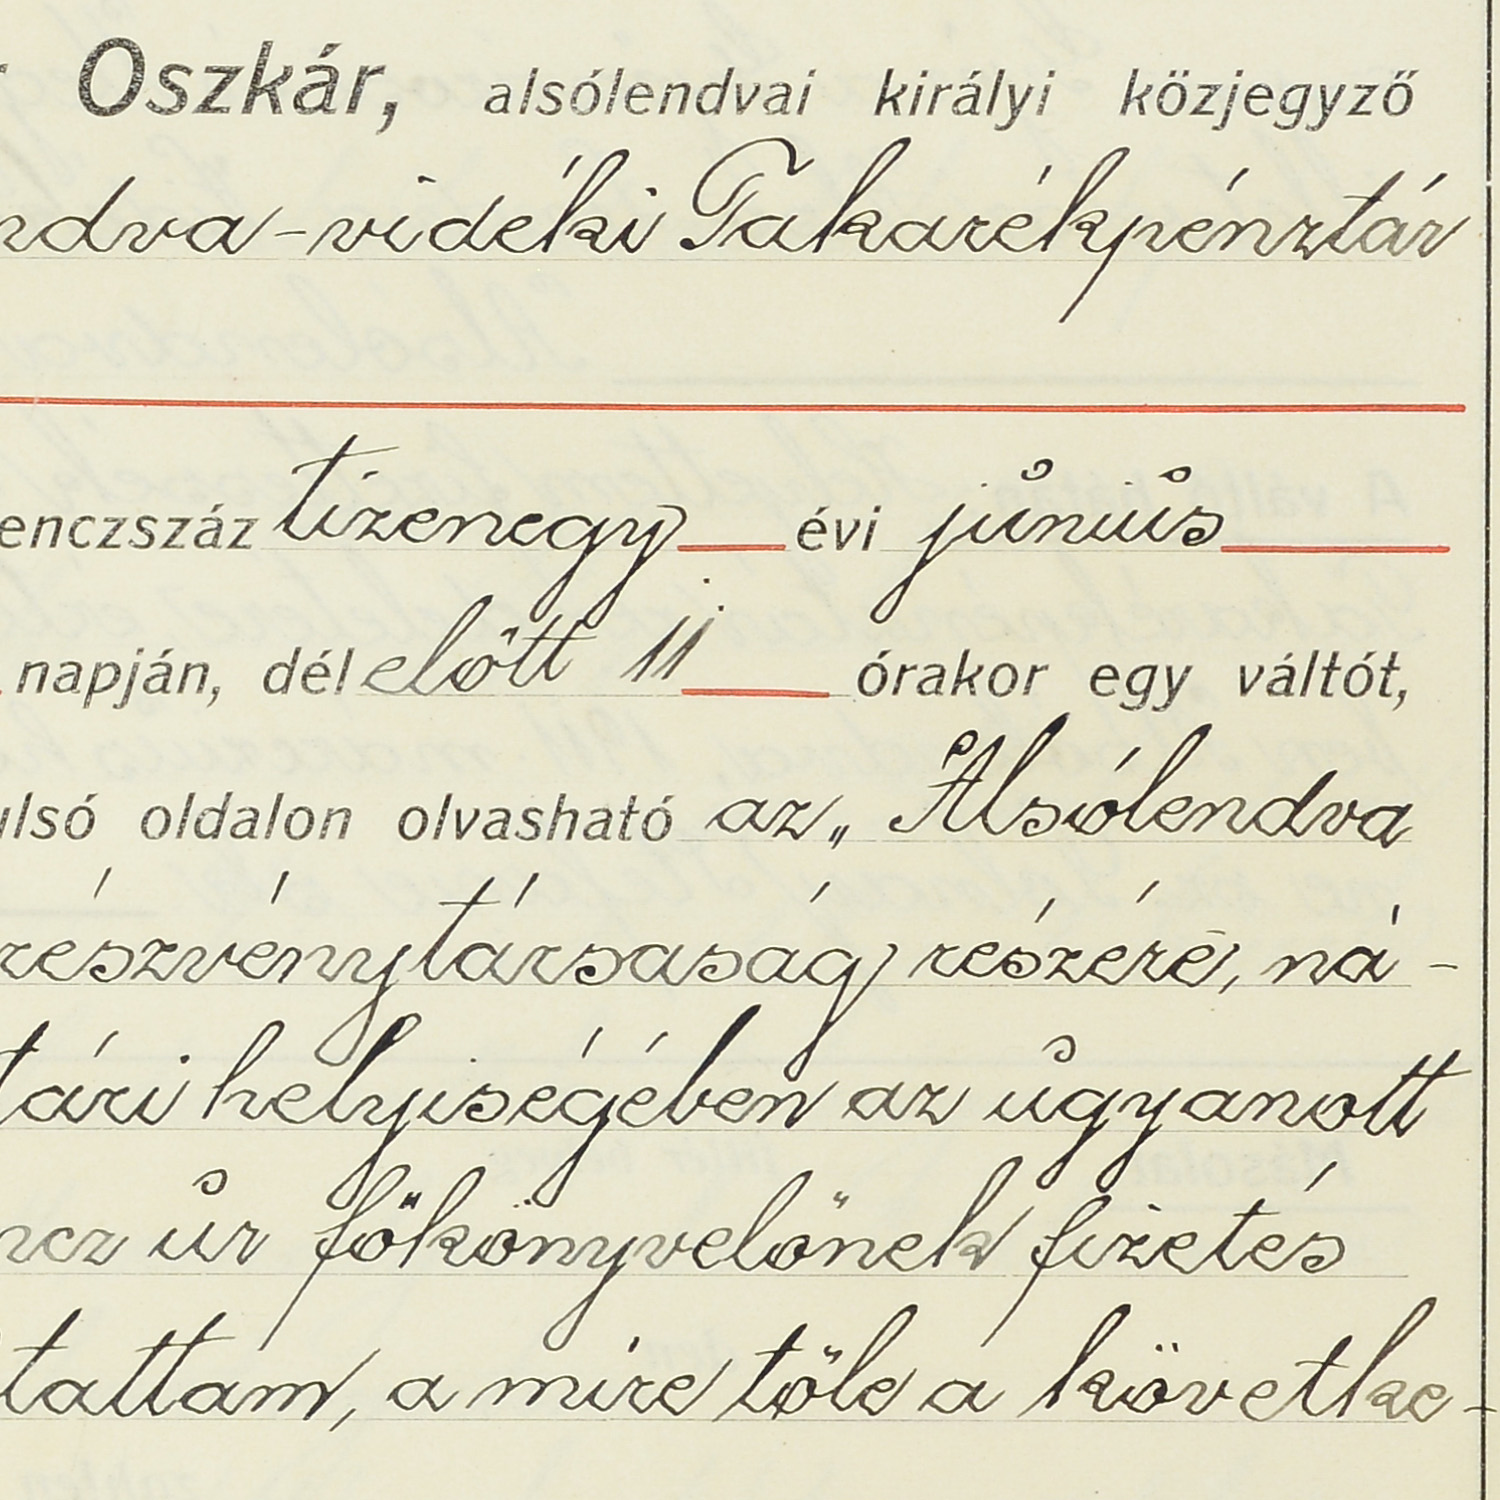 Oszkár, alsólendvai királyi közjegyző
ndva-vidéki Takarékpénztár
enczszáz tizenegy évi június
napján, dél előtt 11 órakor egy váltót,
ulsó oldalon olvasható az „Alsólendva
részvénytársaság részére, ná-
tári helyiségében az ugyanott
ncz úr főkönyvelőnek fizetés
tattam, a mire tőle a követke-